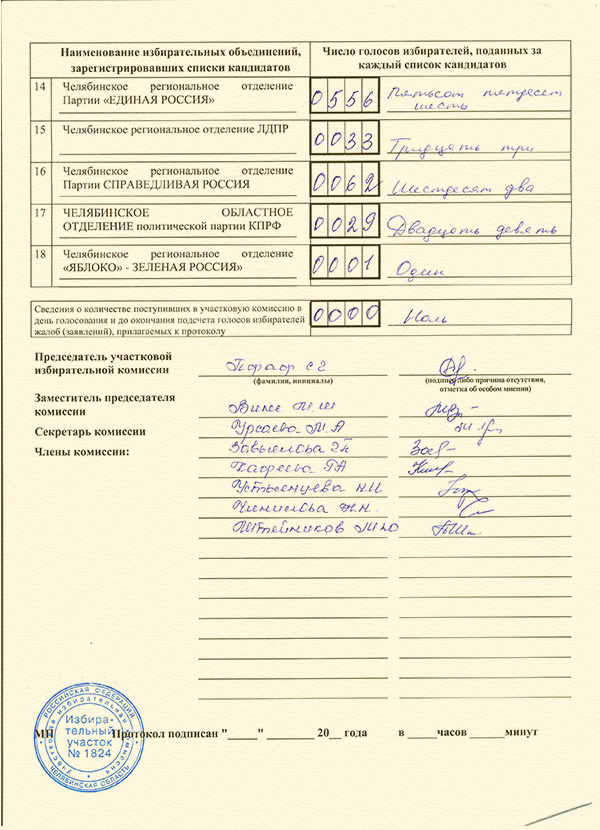 Наименование избирательных объединений, зарегистрировавших списки кандидатов
Число голосов избирателей, поданных за каждый список кандидатов
14 Челябинское региональное отделение
Партии «ЕДИНАЯ РОССИЯ»
0556 Пятьсот пятдесят
шесть
15 Челябинское региональное отделение ЛДПР
0033 Тридцать три
16 Челябинское региональное отделение
Партии СПРАВЕДЛИВАЯ РОССИЯ
0062 Шестдесят два
17 ЧЕЛЯБИНСКОЕ ОБЛАСТНОЕ
ОТДЕЛЕНИЕ политической партии КПРФ
0029 Двадцать девять
18 Челябинское региональное отделение
«ЯБЛОКО» - ЗЕЛЕНАЯ РОССИЯ»
0001 Один
Сведения о количестве поступивших в участковую комиссию в
день голосования и до окончания подсчета голосов избирателей
жалоб (заявлений), прилагаемых к протоколу
0000 Ноль
Председатель участковой
избирательной комиссии
(фамилия, инициалы)
(подпись либо причина отсутствия,
отметка об особом мнении)
Заместитель председателя
комиссии
Секретарь комиссии
Члены комиссии:
Устьенцева Н.И.
Штейников М.Ю
РОССИЙСКАЯ ФЕДЕРАЦИЯ
Участковая избирательная комиссия
Избира-
тельный
участок
№ 1824
ЧЕЛЯБИНСКАЯ ОБЛАСТЬ
МП Протокол подписан "____" _______ 20__ года в _____часов ______минут